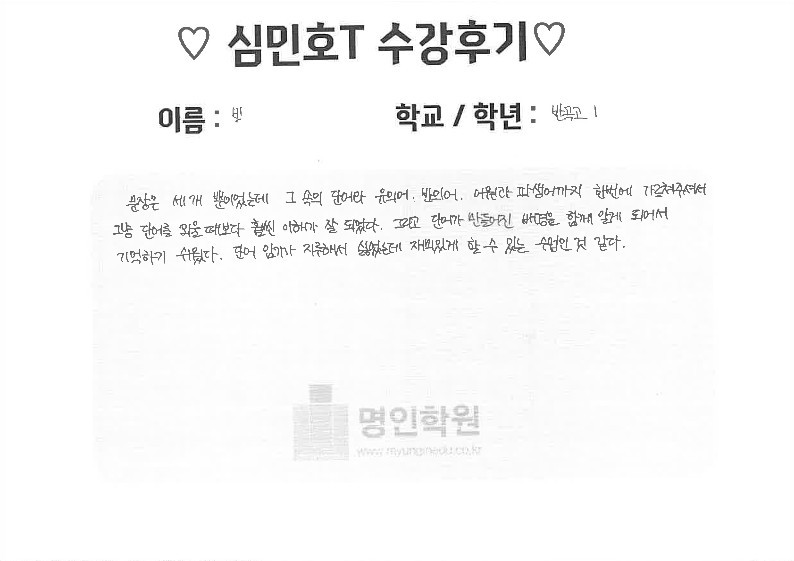 ♡ 심민호T 수강후기♡
이름 : 반
학교 / 학년 : 반곡고 1
문장은 세개 뿐이었는데 그 속의 단어랑 유의어, 반의어, 어원과 파생어까지 한번에 가르쳐주셔서
그냥 단어를 외울 때보다 훨씬 이해가 잘 되었다. 그리고 단어가 만들어진 배경을 함께 알게 되어서
기억하기 쉬웠다. 단어 암기가 지루해서 싫었는데 재미있게 할 수 있는 수업인 것 같다.
명인학원
www.myunginedu.co.kr